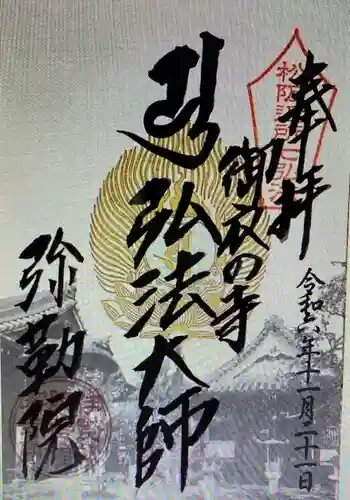 奉拝
令和六年十一月二十一日
御衣の寺
弘法大師
弥勒院